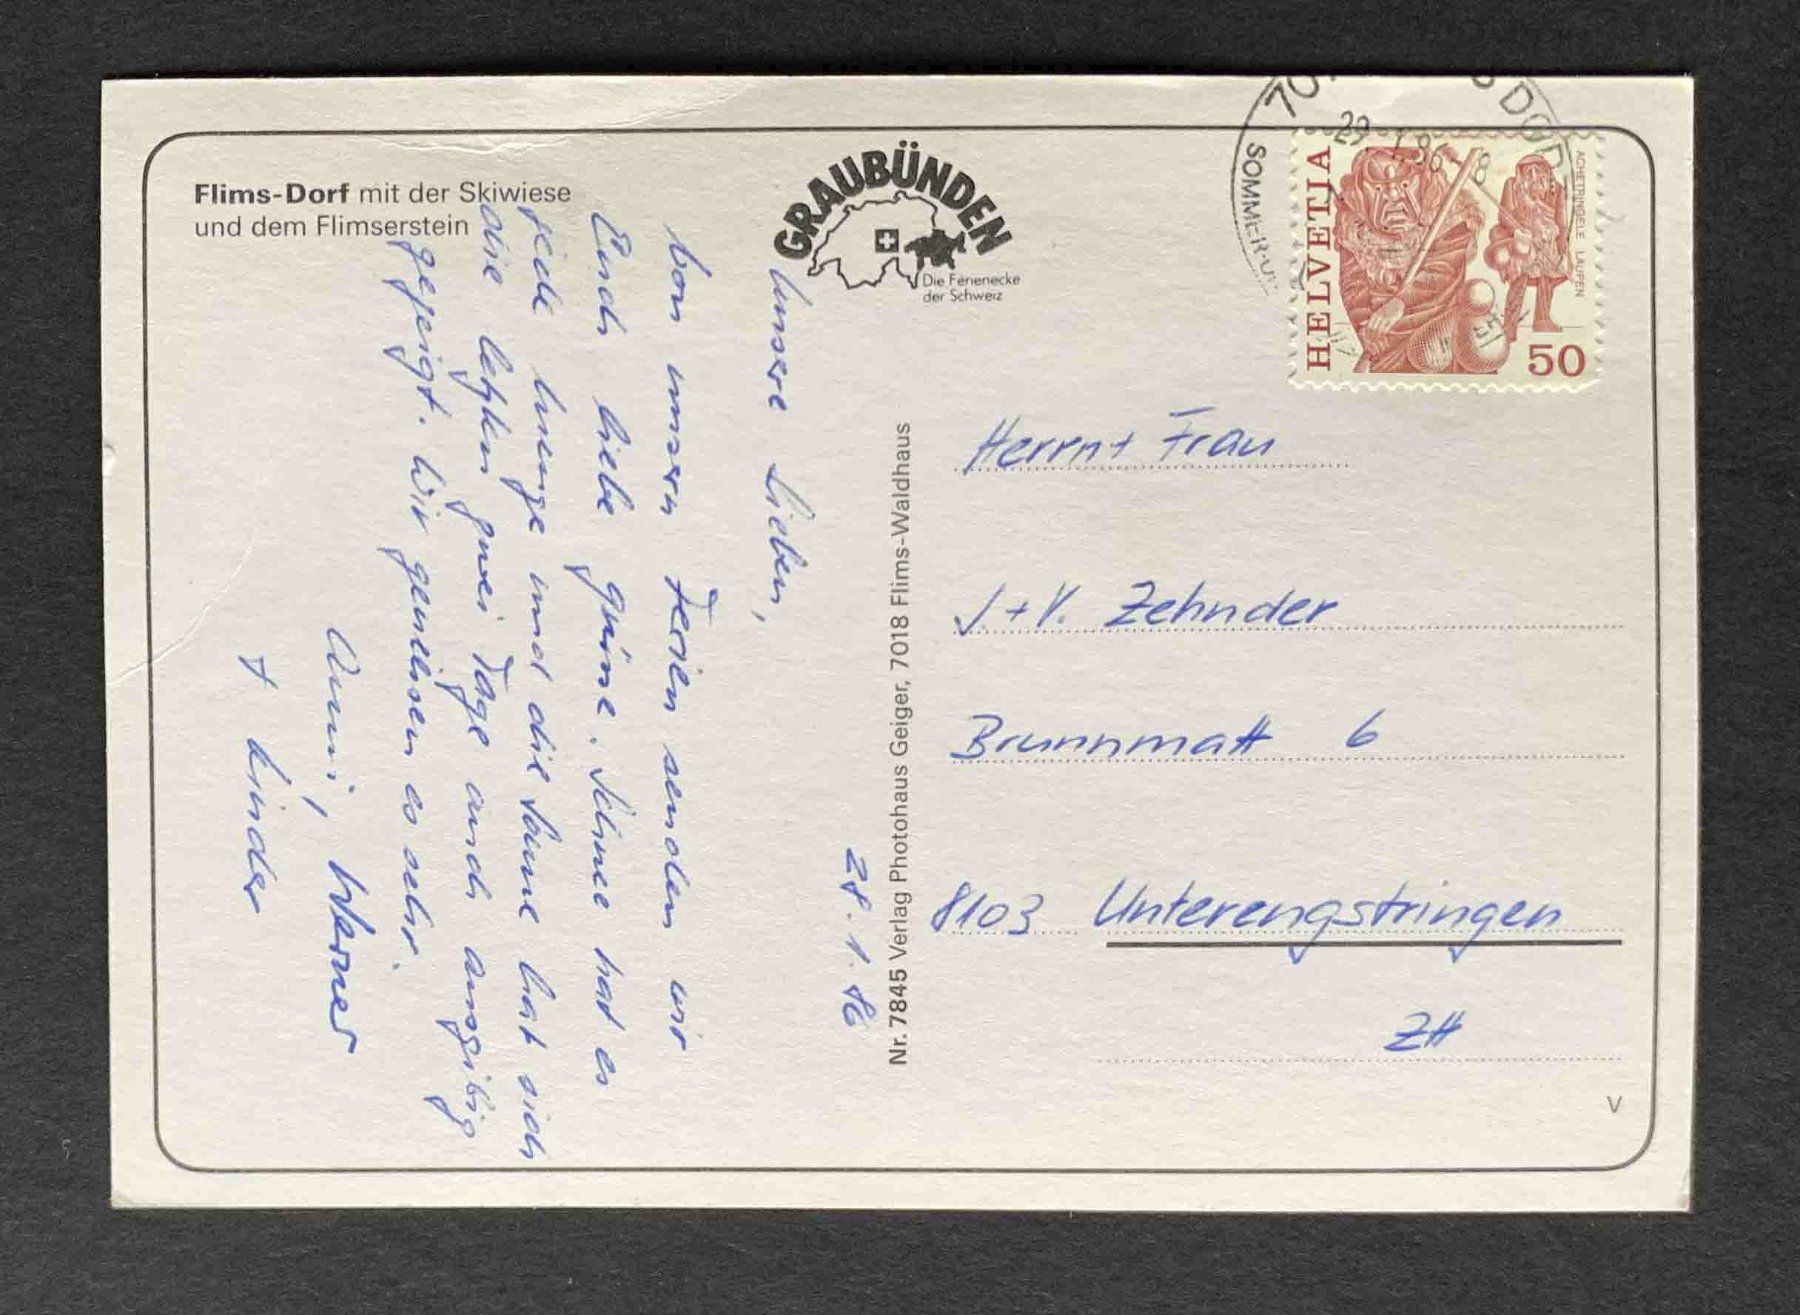 Flims-Dorf mit der Skiwiese
und dem Flimserstein
GRAUBÜNDEN
Die Ferienecke
der Schweiz
HELVETIA
ACHETRINGELE LAUPEN
50
29. 1.86-8
DORF
SOMMER
28.1.86
Unsere Lieben,
von unsern Ferien senden wir
Euch liebe grüsse. Schnee hat es
jede menge und die Sonne hat sich
die letzten zwei Tage auch ausgibig
gezeigt. Wir geniessen es sehr.
Anni, Werner
+ Kinder
Nr. 7845 Verlag Photohaus Geiger, 7018 Flims-Waldhaus
Herrn+ Frau
J.+V. Zehnder
Brunnmatt 6
8103 Unterengstringen
ZH
V